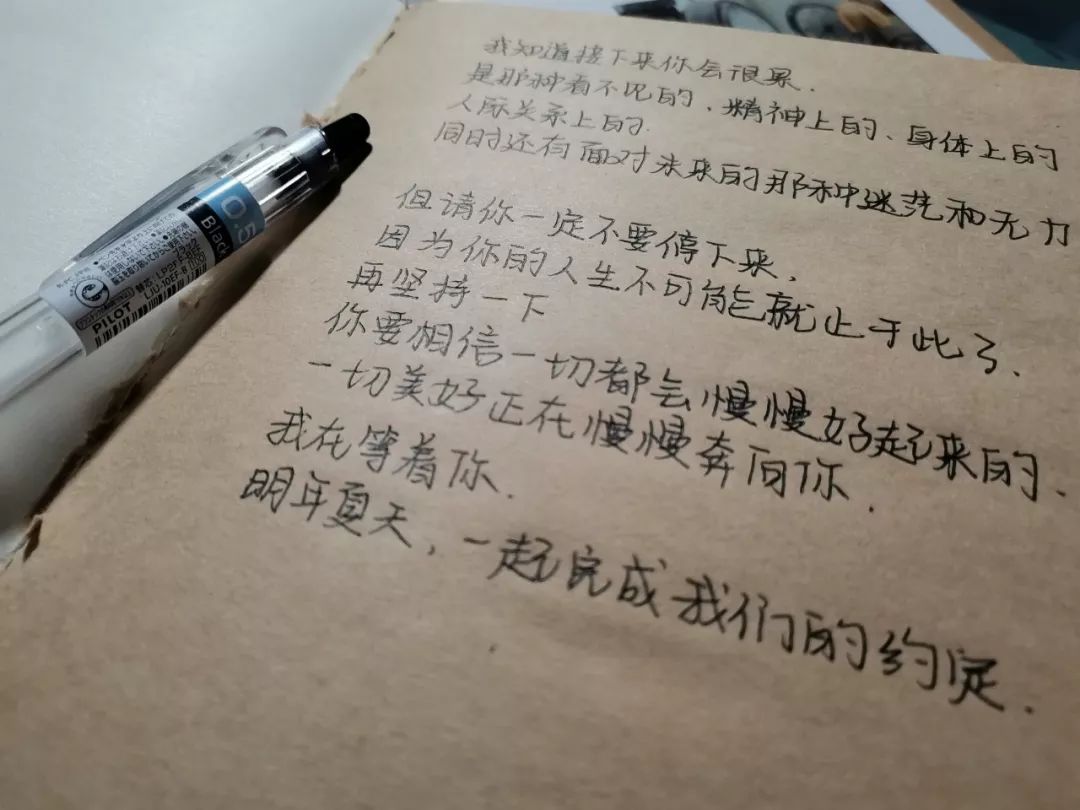 我知道接下来你会很累.
是那种看不见的、精神上的、身体上的
人际关系上的.
同时还有面对未来的那种迷茫和无力
但请你一定不要停下来、
因为你的人生不可能就止于此了、
再坚持一下
你要相信一切都会慢慢好起来的、
一切美好正在慢慢奔向你.
我在等着你.
明年夏天,一起完成我们的约定.
0.5
Black
PILOT